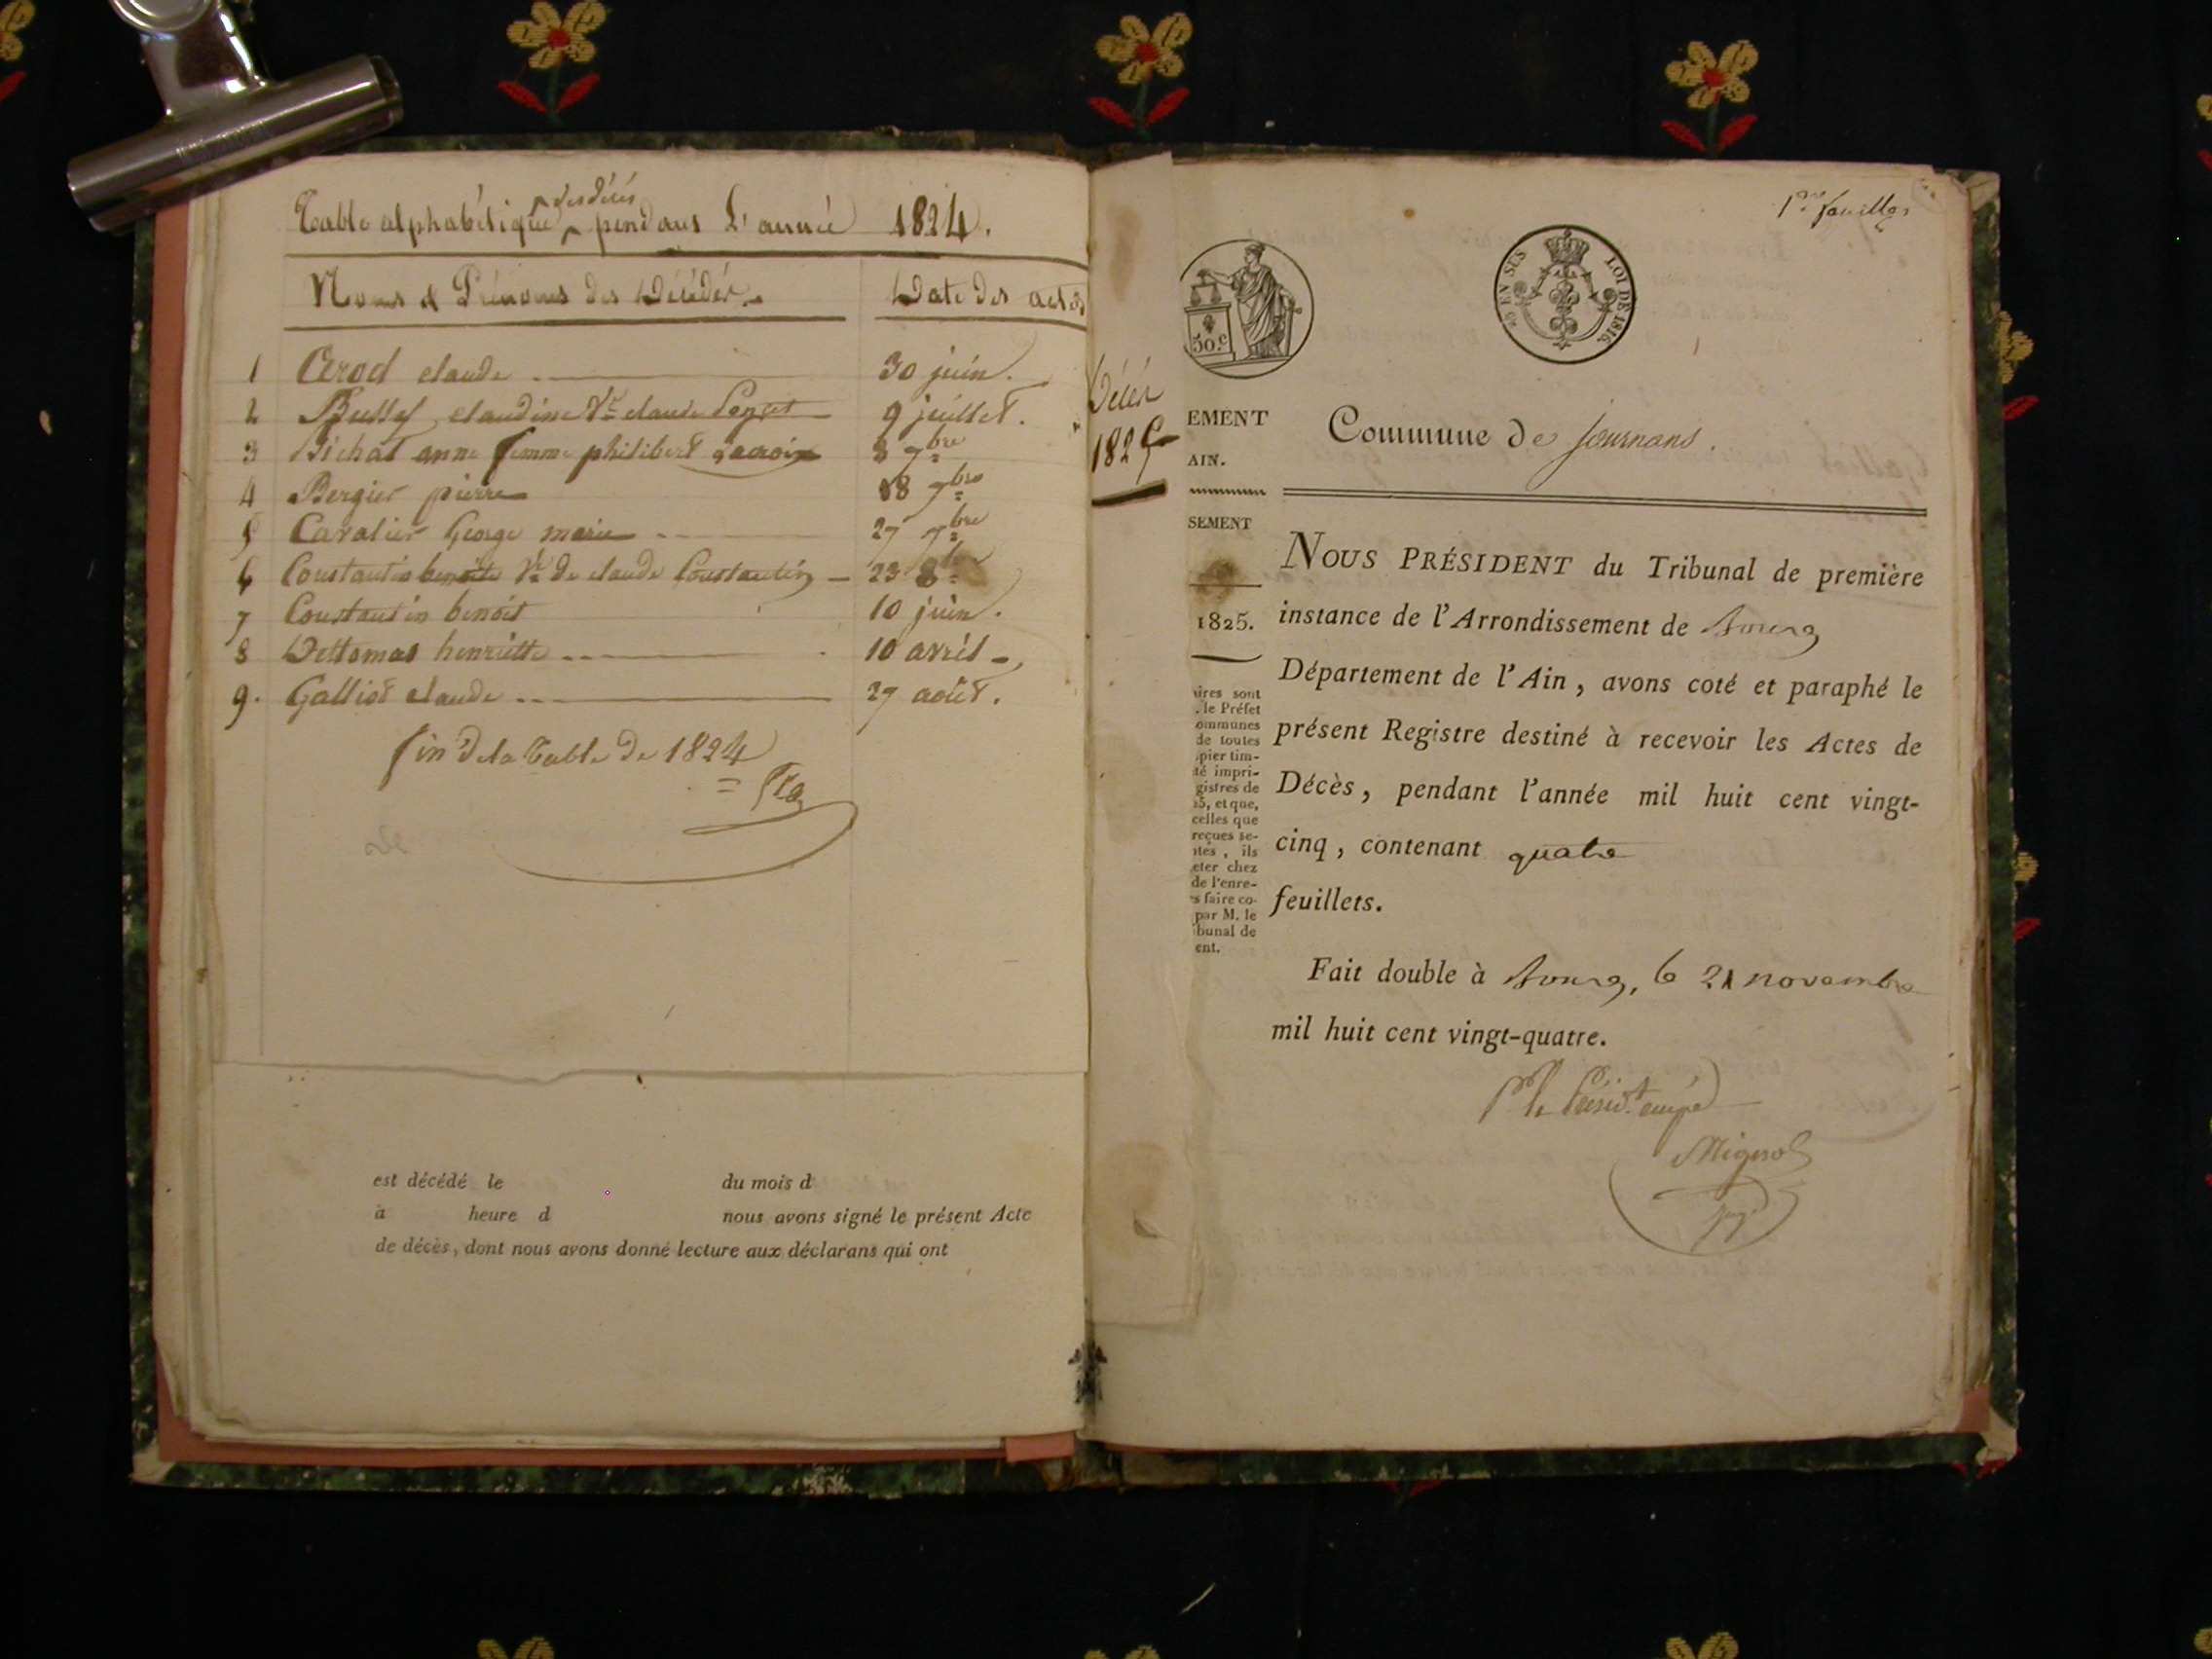 des décès
Table alphabétique pendant l'année 1824.
Noms & Prénoms des Décédés
Date des actes
1 Cerod claude 30 juin.
2 Bussy claudine Ve claude 9 juillet.
3 Bichat anne femme philibert Lacroix 8 7bre
4 Bergier pierre 18 7bre
5 Cavalier George marie 27 7bre
6 Constantin benoite Ve de claude Constantin 23 8bre
7 Constantin benoit 10 juin.
8 Dettomas henriette 10 avril
9. Galliot claude 27 août.
fin de la Table de 1824
est décédé le du mois d
à heure d nous avons signé le présent Acte
de décès, dont nous avons donné lecture aux déclarans qui ont
Décès
1825
1er feuillet
50.c
25 EN SUS LOI DE 1816.
EMENT
AIN.
SEMENT
1825.
aires sont
. le Préfet
ommunes
de toutes
pier tim-
té impri-
gistres de
25, et que,
celles que
reçues se-
ntes, ils
eter chez
de l'enre-
s faire co-
par M. le
ibunal de
ent.
Commune de Journans.
NOUS PRÉSIDENT du Tribunal de première
instance de l'Arrondissement de Bourg
Département de l'Ain, avons coté et paraphé le
présent Registre destiné à recevoir les Actes de
Décès, pendant l'année mil huit cent vingt-
cinq, contenant quatre
feuillets.
Fait double à Bourg, le 21 novembre
mil huit cent vingt-quatre.
Pr le Présidt empé
juge